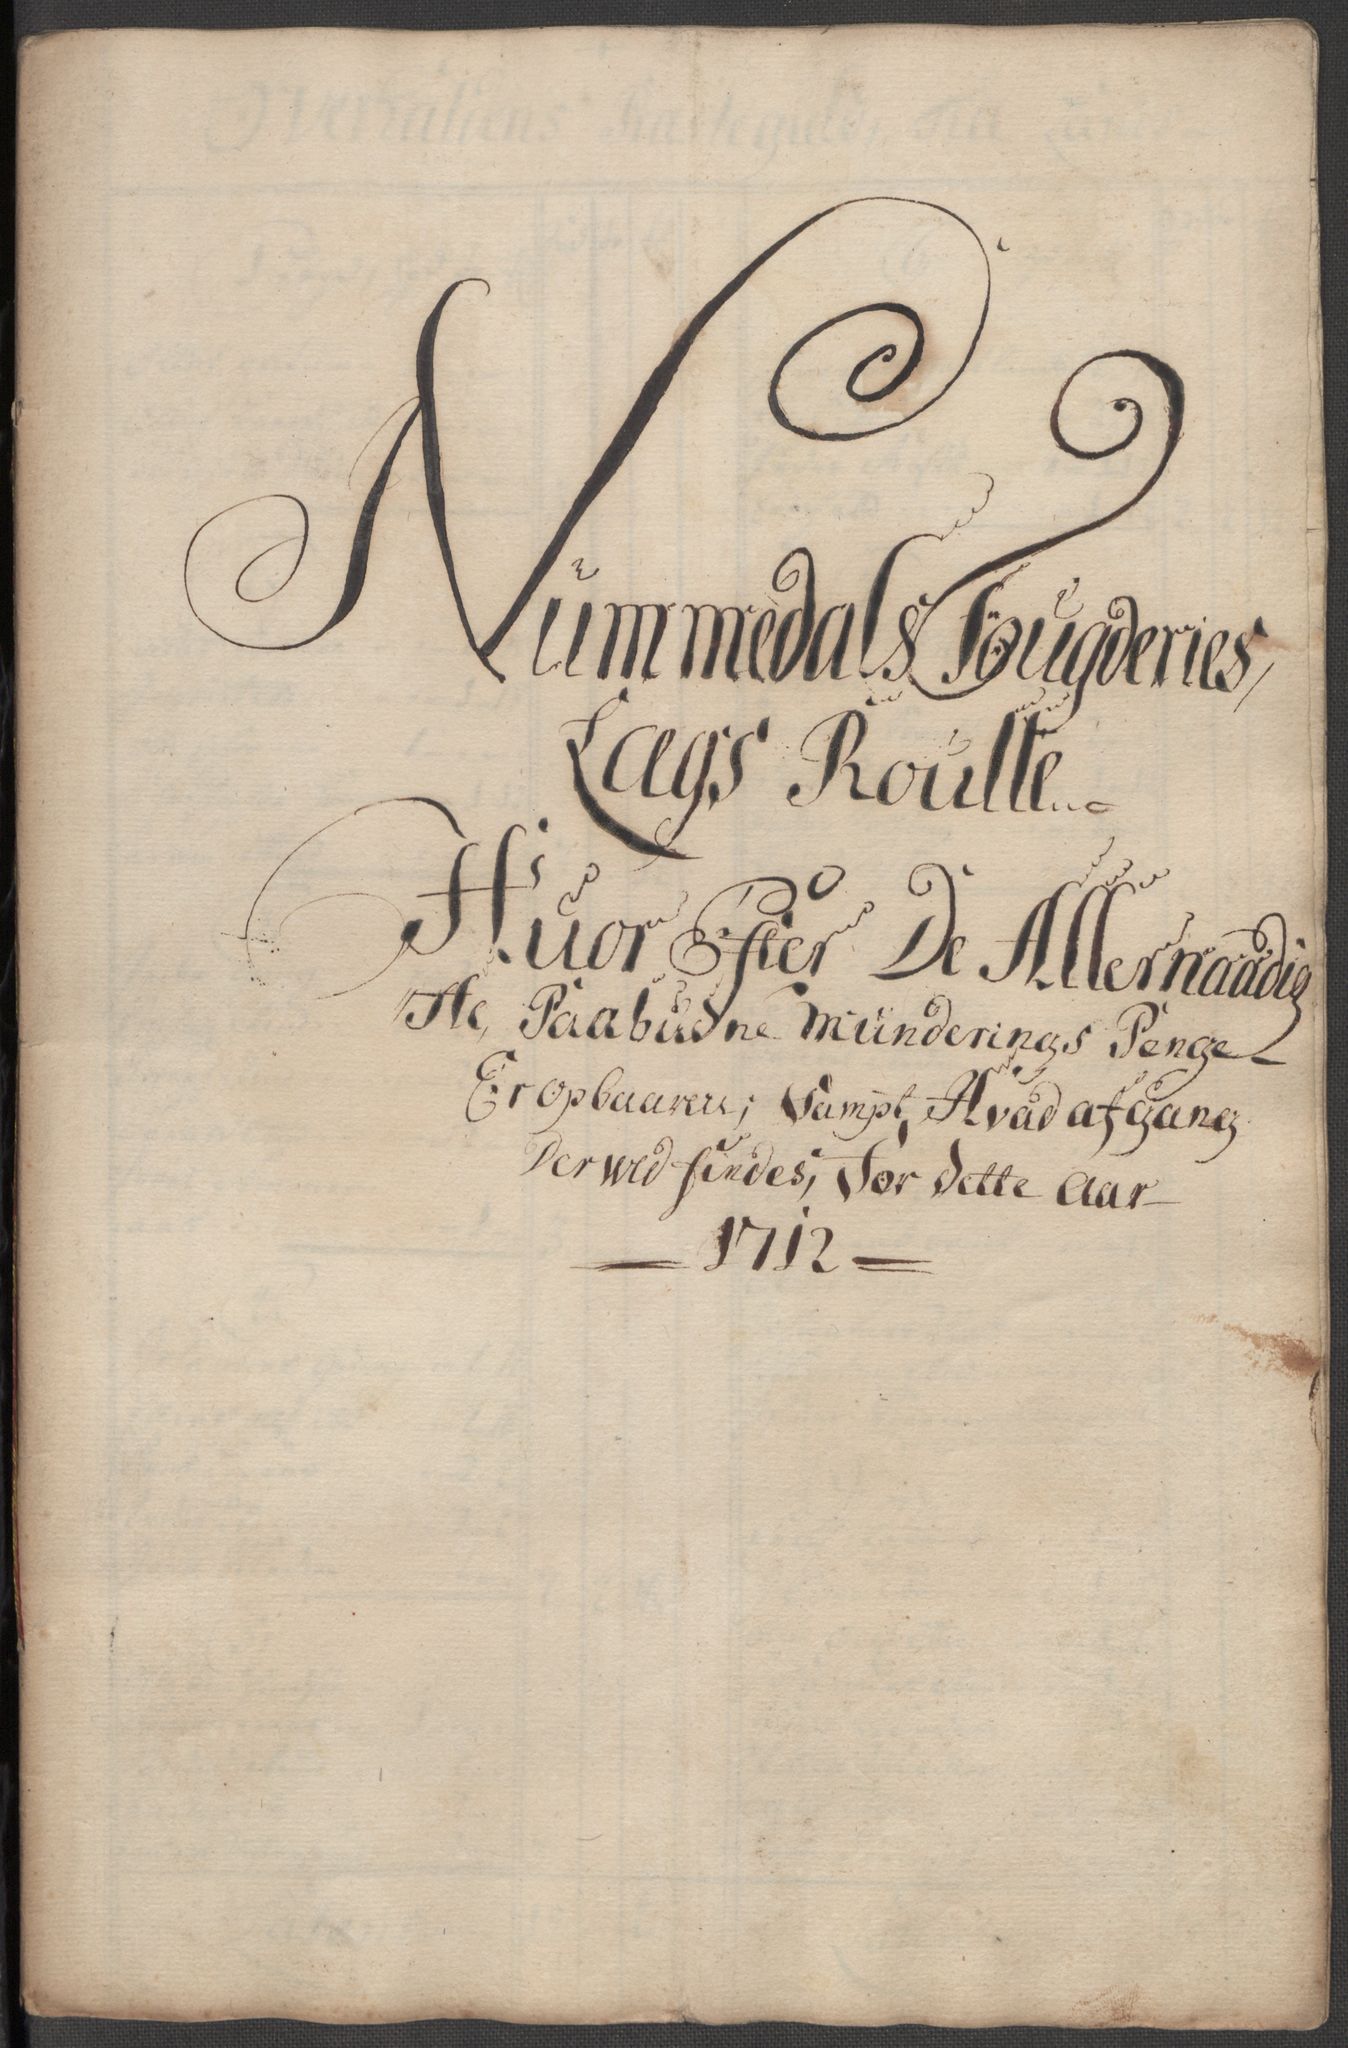 Nummedals Fougderies,
Lægs Roulle
Huor Efter De Allernaadig
ste, Paabudne Munderings Penge
Er opbaaren; Sampt, Hvad afgang
Der wed findes, For dette Aar
1712